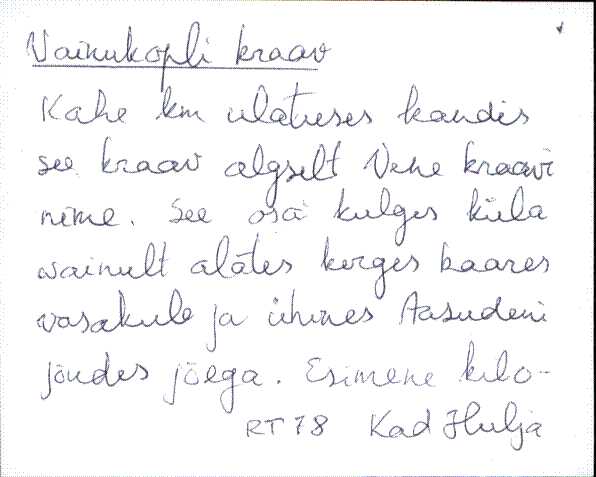 Vainukopli kraav
Kahe km ulatuses kandis
see kraav algselt Vene kraavi
nime. See osa kulges küla
vainult alates kerges kaares
vasakule ja ühines Aasudeni
jõudes jõega. Esimene kilo-
RT 78 Kad Hulja